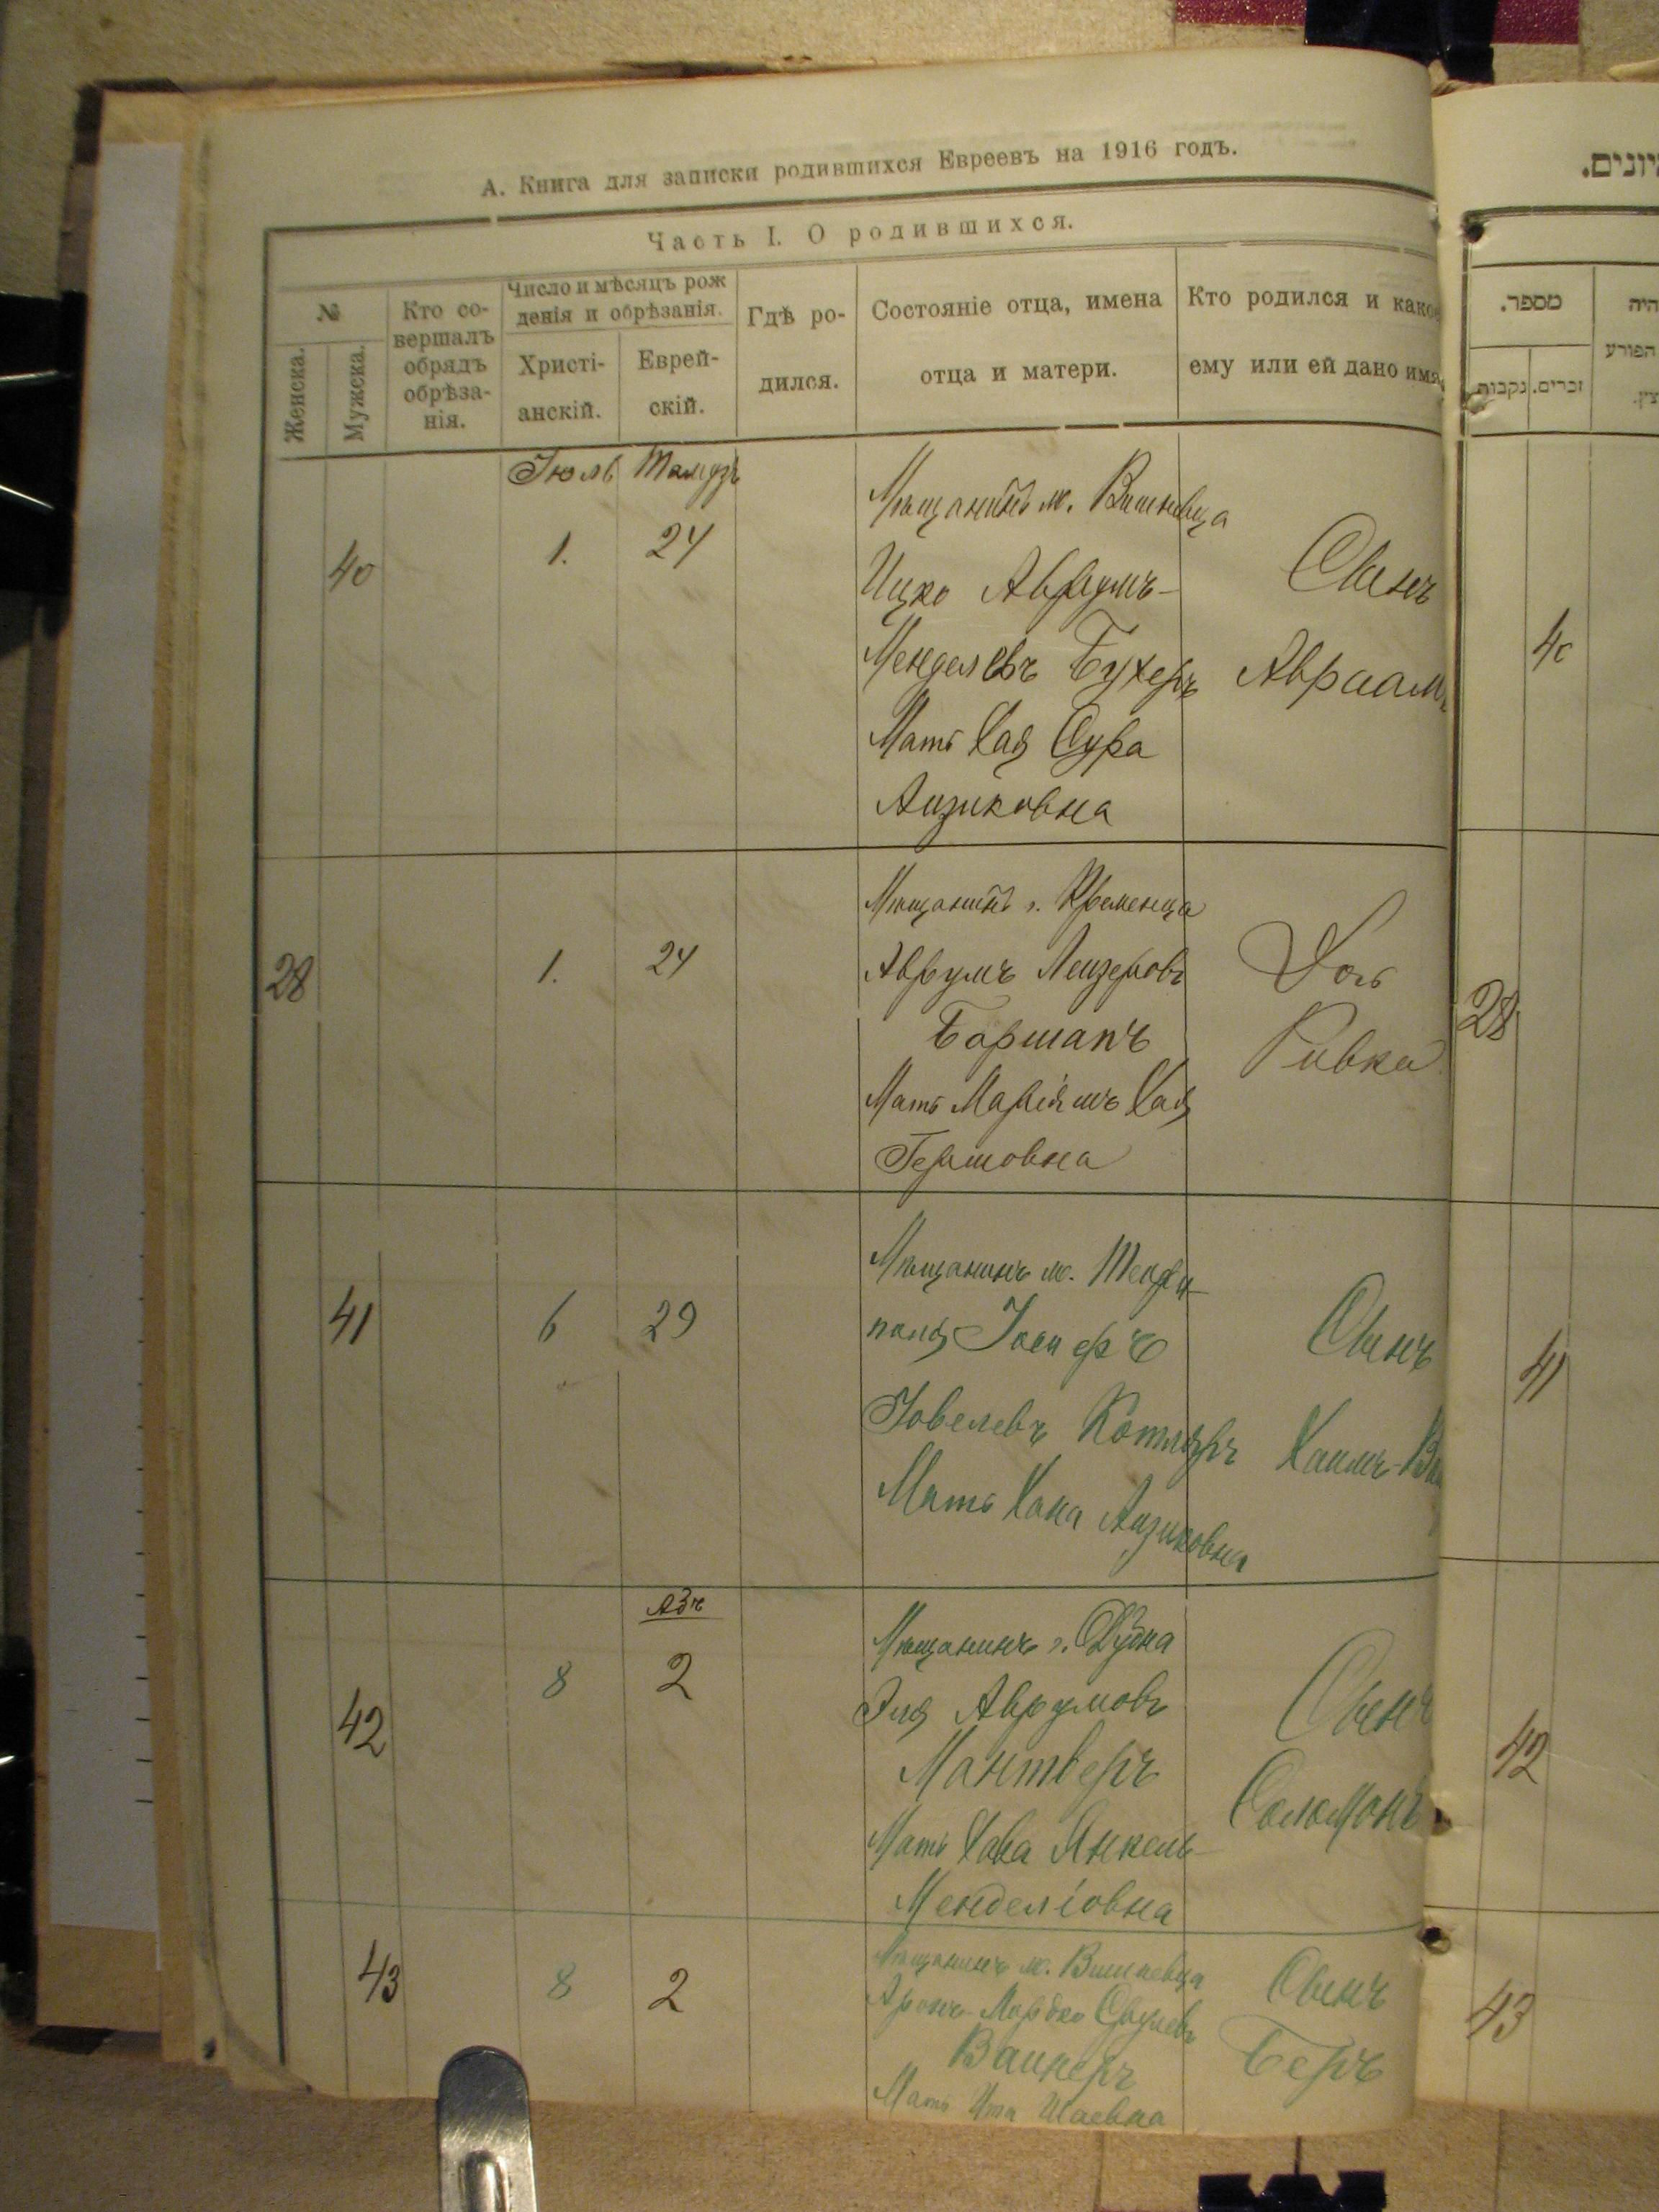 А. Книга для записки родившихся Евреевъ на 1916 годъ.
Часть I. О родившихся.
№
Женска.
Мужска.
Кто со-
вершалъ
обрядъ
обрѣза-
нія.
Число и мѣсяцъ рож
денія и обрѣзанія.
Христі-
анскій.
Еврей-
скій.
Гдѣ ро-
дился.
Состояніе отца, имена
отца и матери.
Кто родился и какое
ему или ей дано имя.
Іюль Тамузъ
40
1.
24
Мѣщанинъ м. Вишневца
Ицко Аврумъ-
Менделевъ Бухеръ
Мать Хая Сура
Айзиковна
Сынъ
Авраамъ
28
1.
24
Мѣщанинъ г. Кременца
Аврумъ Лейзеровъ
Боршакъ
Мать Маріямъ Хая
Гершовна
Дочь
Ривка
41
6
29
Мѣщанинъ м.
поля Іосифъ
Іовелевъ Котляръ
Мать Хана Айзиковна
Сынъ
Хаимъ-
42
8
Абъ
2
Мѣщанинъ г. Дубна
Эля Аврумовъ
Мантверъ
Мать Хава Янкель-
Менделіовна
Сынъ
Соломонъ
43
8
2
Мѣщанинъ м. Вишневца
Аронъ-Мордко Срулевъ
Вайнеръ
Мать Ита Шаевна
Сынъ
Беръ
מספר.
זכרים.
נקבות
הפורע
40
28
41
42
43